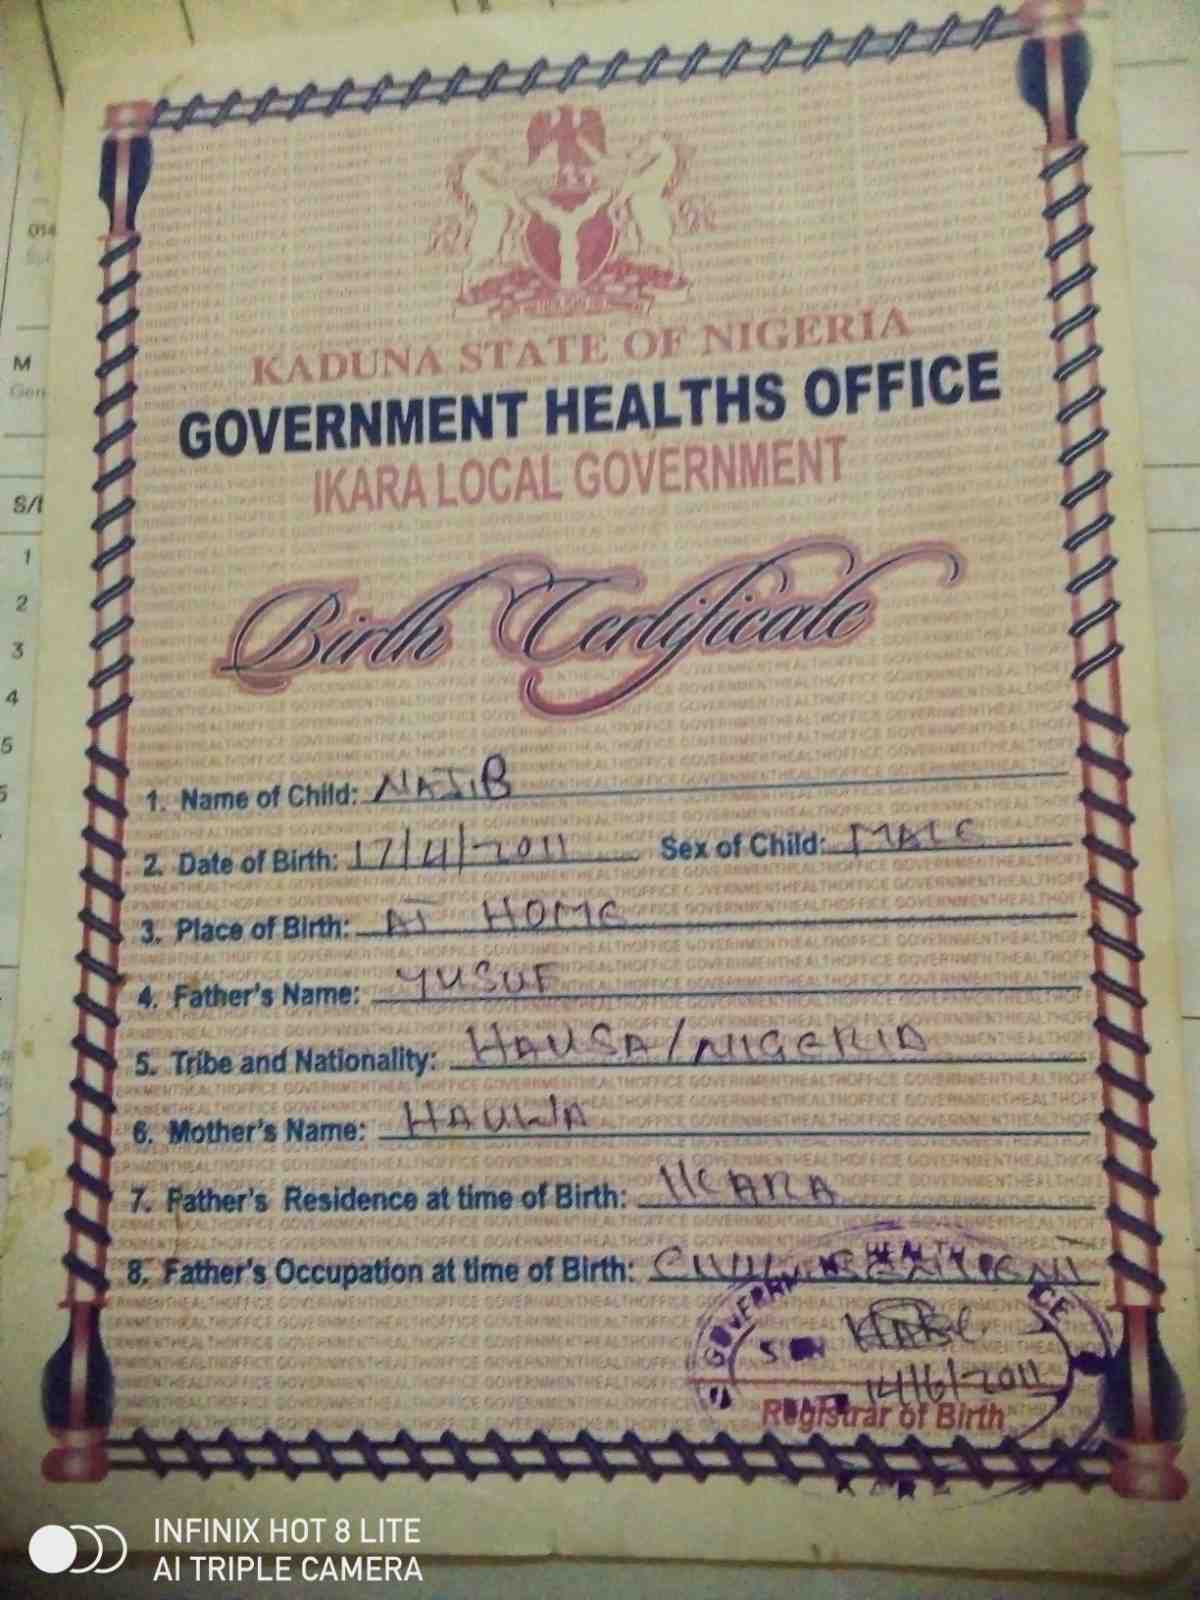 KADUNA STATE OF NIGERIA
GOVERNMENT HEALTHS OFFICE
IKARA LOCAL GOVERNMENT
Birth Certificate
1. Name of Child: NAJIB
2. Date of Birth: 17/4/2011 Sex of Child: MALE
3. Place of Birth: AT HOME
4. Father's Name: YUSUF
5. Tribe and Nationality: HAUSA/NIGERIA
6. Mother's Name: HAUWA
7. Father's Residence at time of Birth: IKARA
8. Father's Occupation at time of Birth: CIVIL
GOVERNMENT HEALTH OFFICE
SIGN
DATE 14/6/2011
Registrar of Birth
M
S/N
1
2
3
4
5
INFINIX HOT 8 LITE
AI TRIPLE CAMERA